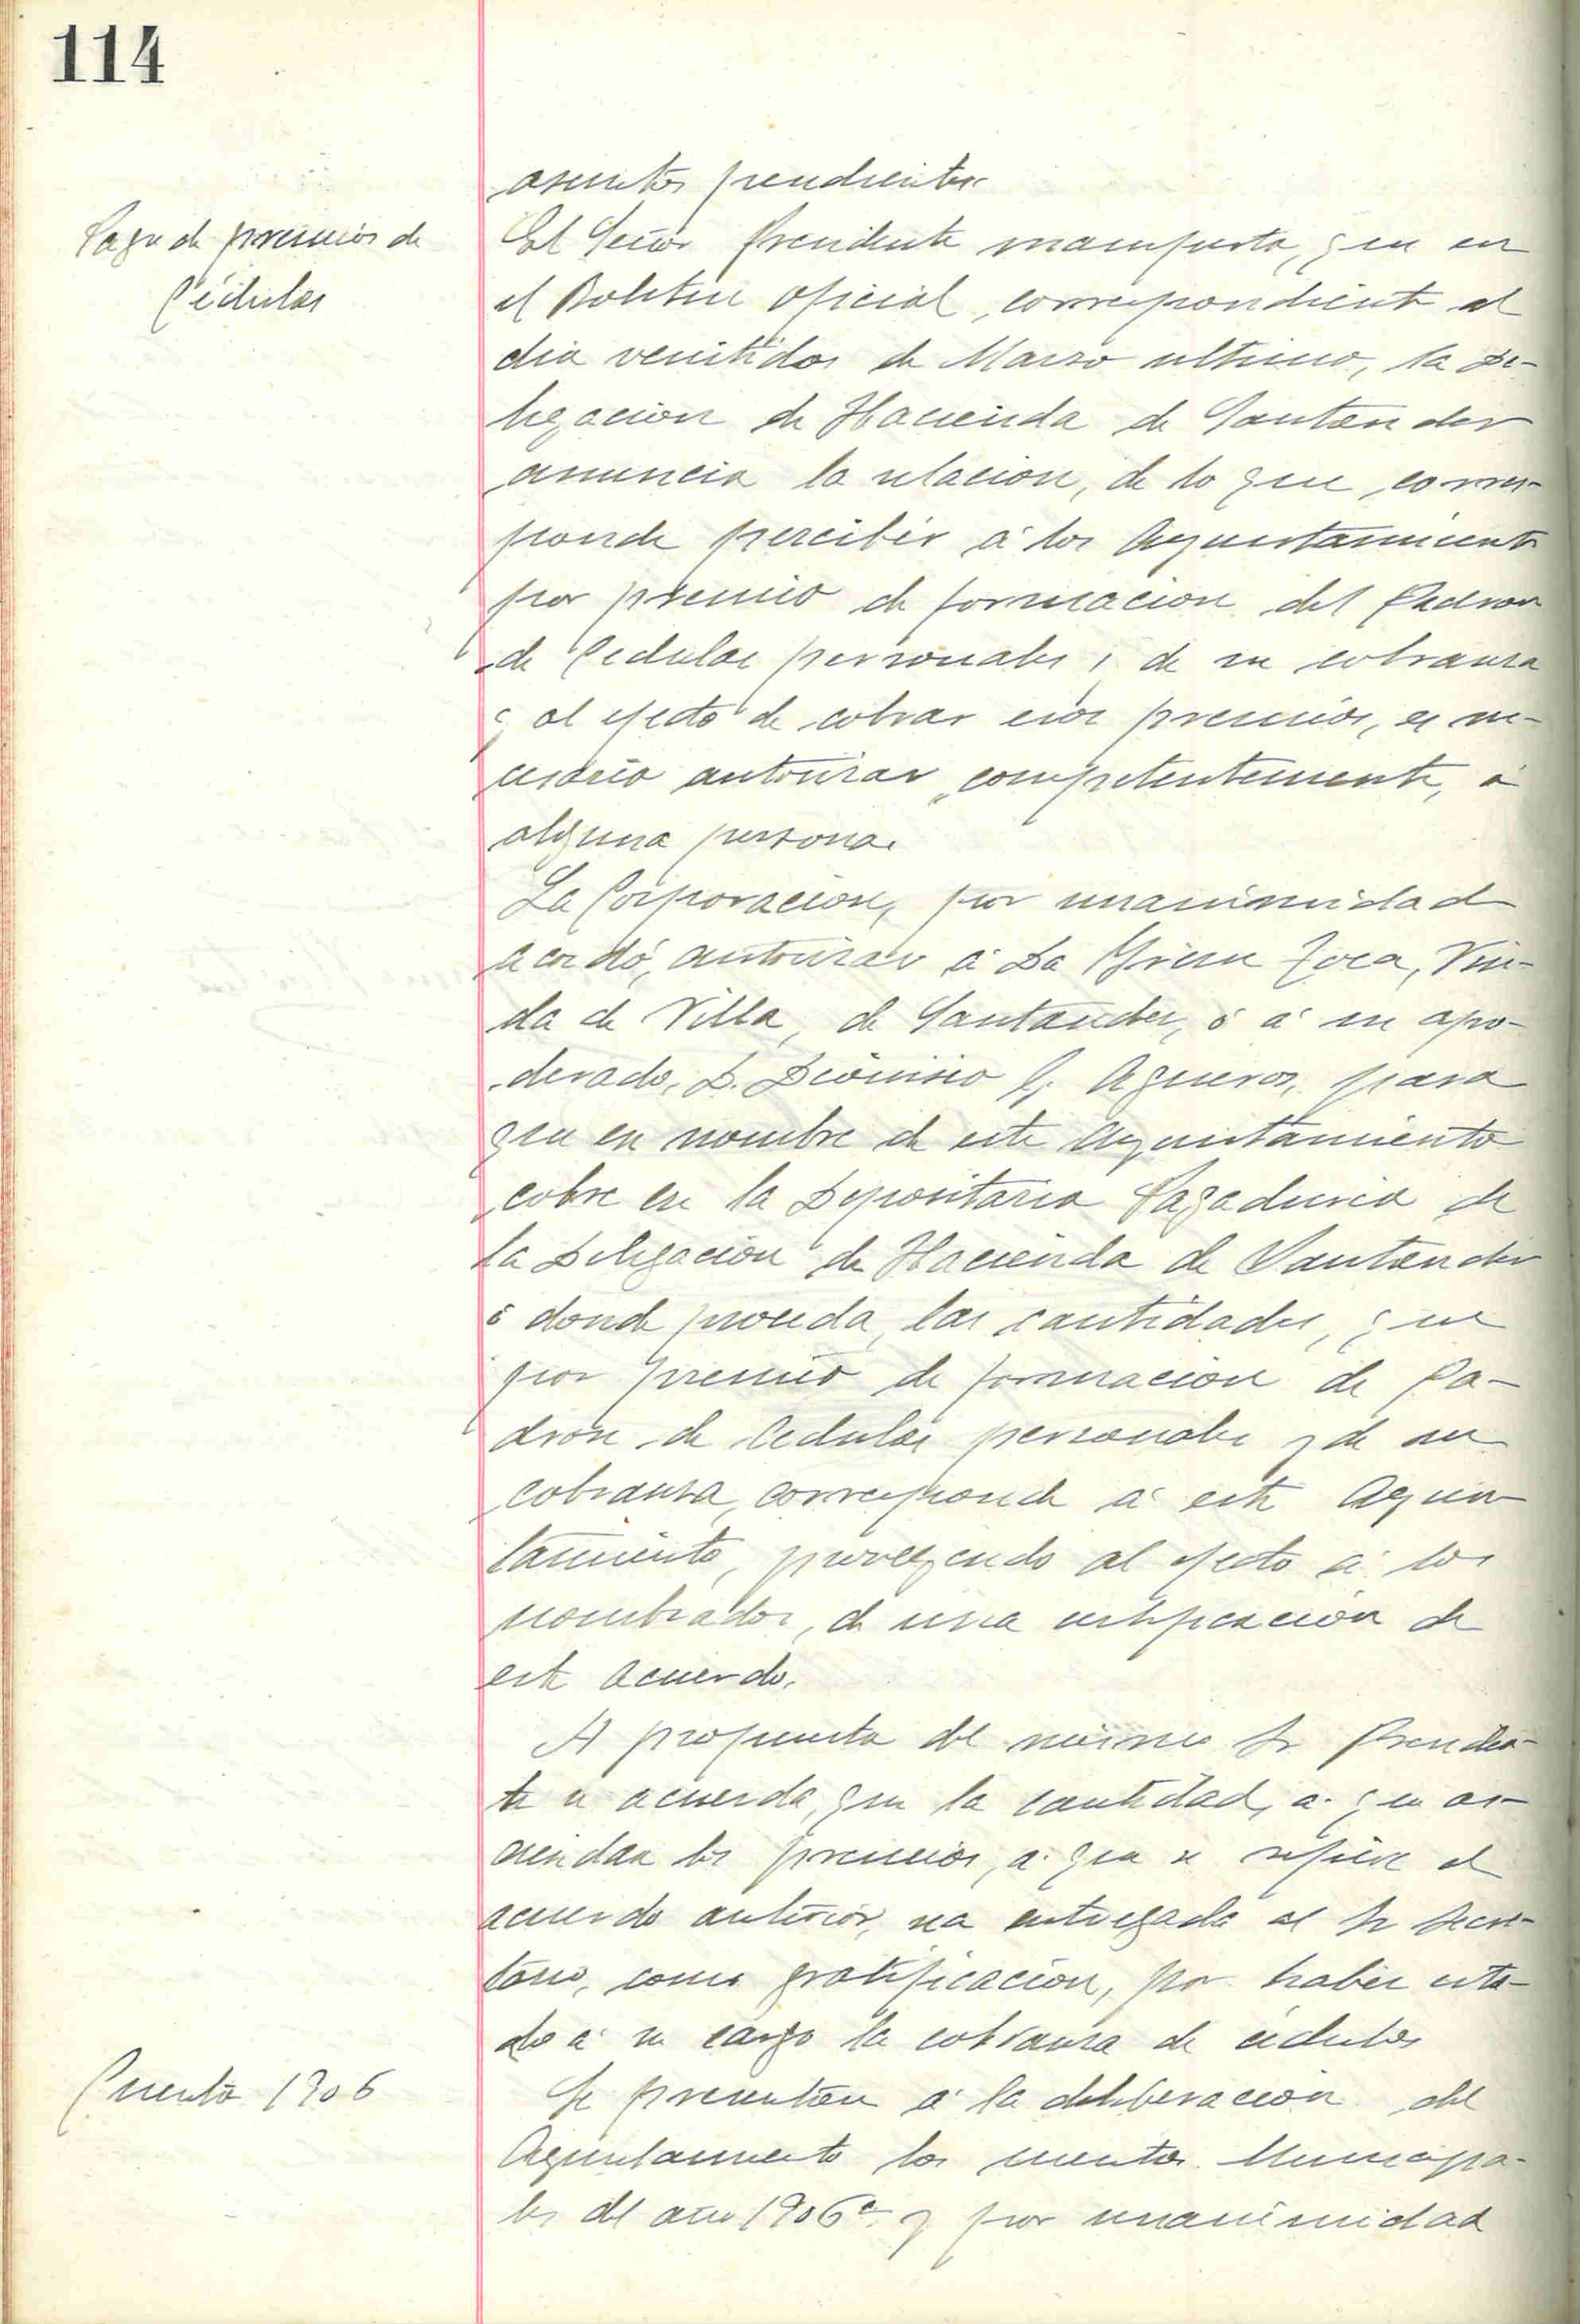 114
asuntos pendientes.
Pago de premios de
Cédulas
El Señor Presidente manifiesta, que en
el Boletin oficial, correspondiente al
dia veintidos de Marzo ultimo, la De-
legacion de Hacienda de Santander
anuncia la relacion, de lo que corres-
ponde percibir á los Ayuntamientos
por premio de formacion del Padron
de Cedulas personales y de su cobranza
y al efecto de cobrar esos premios, es ne-
cesario autorizar competentemente, á
alguna persona.
La Corporacion, por unanimidad
acordó, autorizar á Da Zoca, Viu-
da de Villa, de Santander, ó á su apo-
derado, D. Dionisio G. Agueros, para
que en nombre de este Ayuntamiento
cobre en la Depositaria Pagaduria de
la Delegacion de Hacienda de Santander
ó donde proceda, las cantidades, que
por premio de formacion de Pa-
dron de Cedulas personales y de su
cobranza, corresponde á este Ayun
tamiento, proveyendo al efecto á los
nombrados, de una certificacion de
este acuerdo.
A propuesta del mismo Sr Presiden-
te se acuerda, que la cantidad, a que as-
ciendan los premios, a que se refiere el
acuerdo anterior, sea entregada al Sr Secre-
tario, como gratificacion, por haber esta-
do á su cargo la cobranza de cédulas
Cuenta 1906
Se presentan á la deliberacion del
Ayuntamiento las cuentas Municipa-
les del año 1906 y por unanimidad